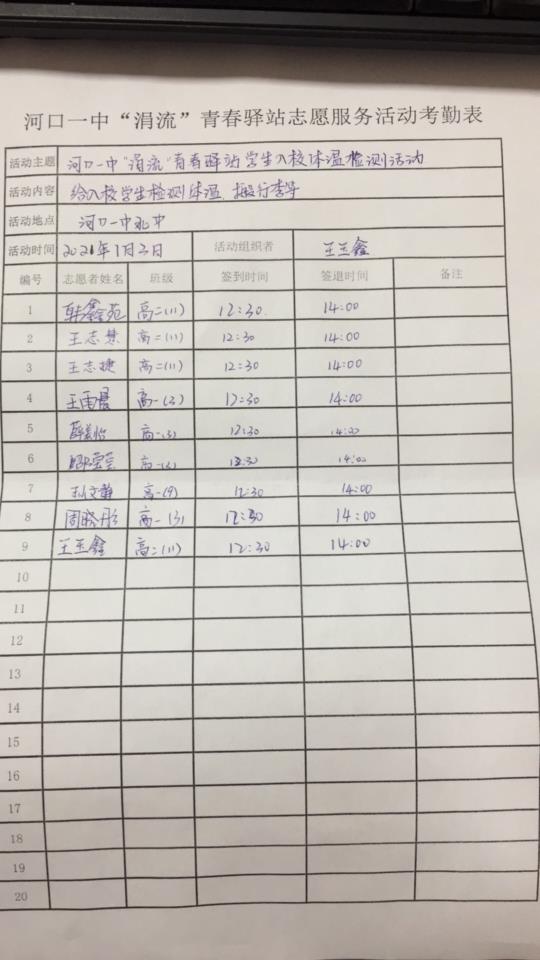 河口一中“涓流”青春驿站志愿服务活动考勤表
活动主题 河口一中“涓流”青春驿站学生入校体温检测活动
活动内容 给入校学生检测体温、搬行李等
活动地点 河口一中北中
活动时间 2021年1月3日 活动组织者 王玉鑫
编号 志愿者姓名 班级 签到时间 签退时间 备注
1 韩鑫苑 高二(11) 12:30 14:00
2 王志慧 高二(11) 12:30 14:00
3 王志捷 高二(11) 12:30 14:00
4 王雨晨 高一(3) 12:30 14:00
5 薛美怡 高一(3) 12:30 14:00
6 高一(3) 12:30 14:00
7 孙文静 高一(9) 12:30 14:00
8 周晓彤 高一(3) 12:30 14:00
9 王玉鑫 高二(11) 12:30 14:00
10
11
12
13
14
15
16
17
18
19
20